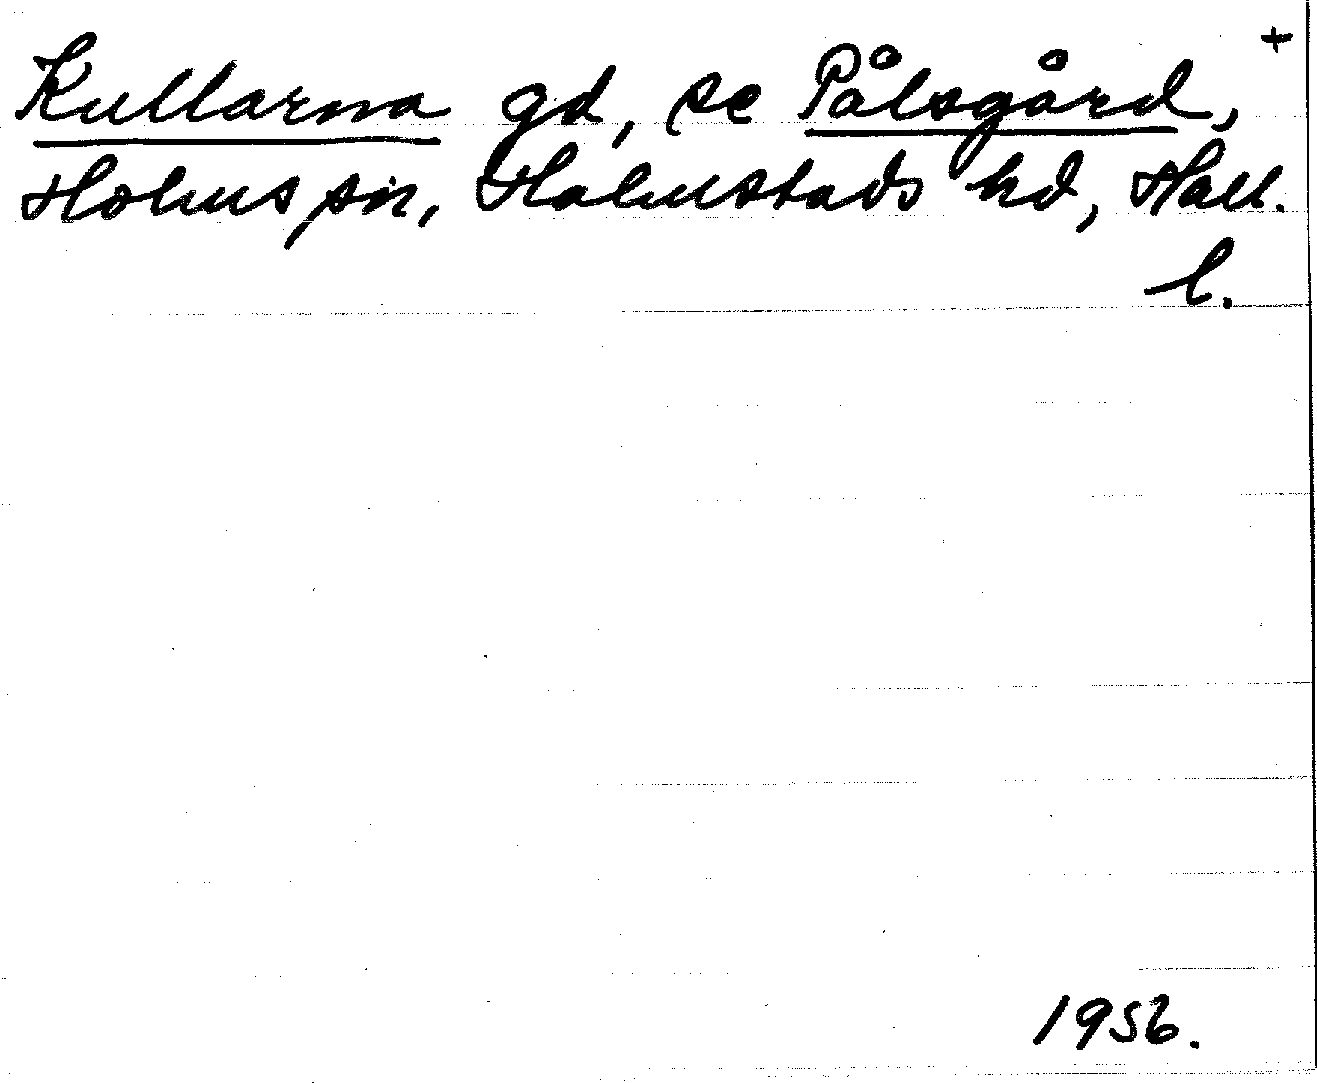 Kullarna gd, se Pålsgård, +
Holms sn, Halmstads hd, Hall.
l.
1956.